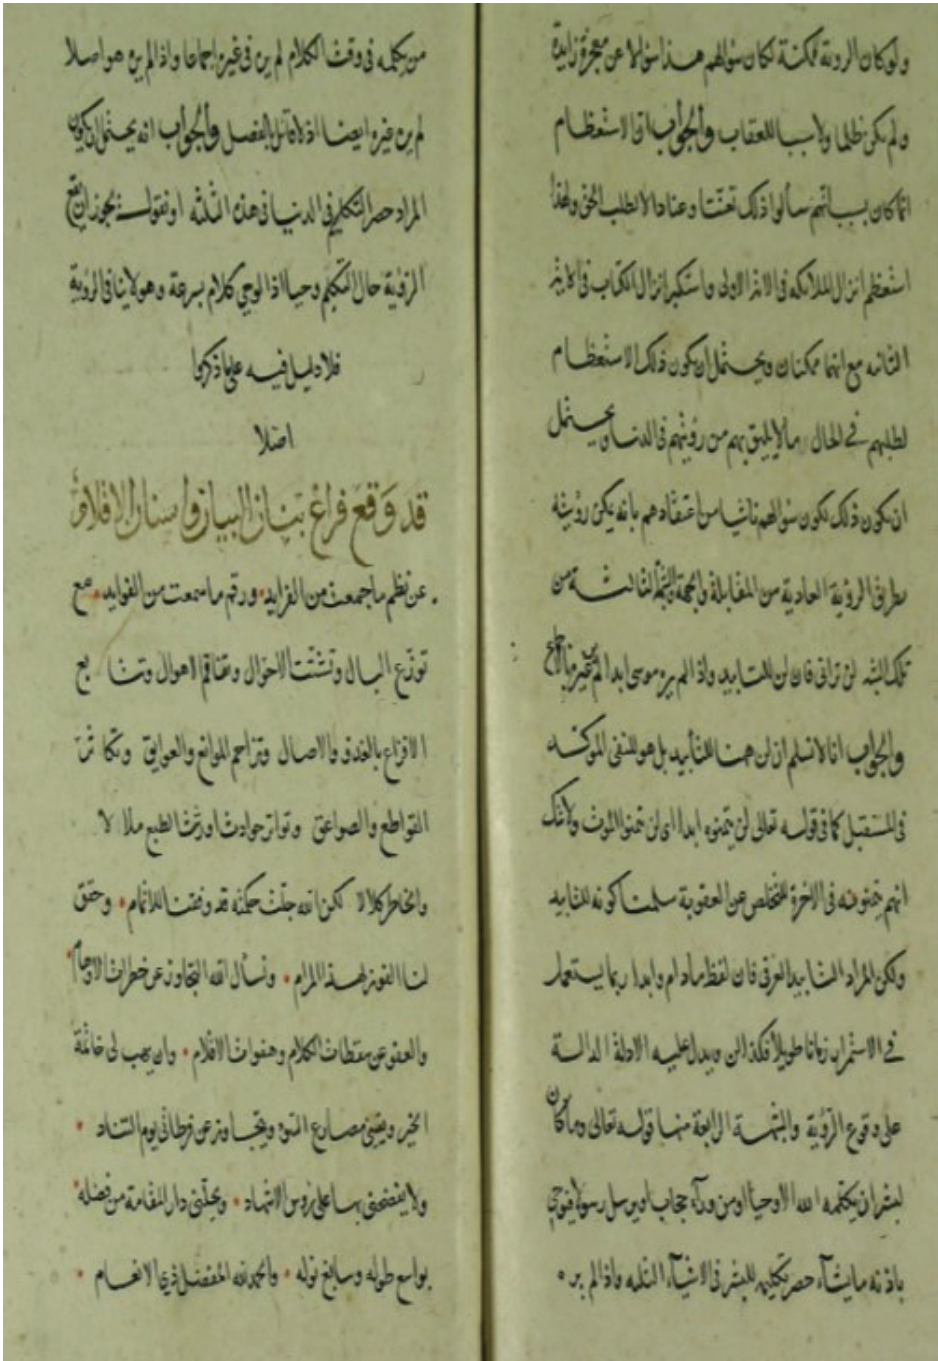 ولو كان الرؤية ممكنة لكان سؤالهم هذا سؤالا عن معجزة زايدة
ولم يكن ظلما ولا سببا للعقاب والجواب ان الاستعظام
انما كان بسبب انهم سألوا ذلك تعنتا وعنادا لا لطلب الحق ولهذا
استعظم انزال الملائكة في الاية الاولى واستكبر انزال الكتاب في الاية
الثانية مع انهما ممكنان ويحتمل ان يكون ذلك الاستعظام
لطلبهم في الحال ما لا يليق بهم من رؤيتهم في الدنيا ويحتمل
ان يكون ذلك لكون سؤالهم ناشيا من اعتقادهم بانه يمكن رؤيته
بطريق الرؤية العادية من المقابلة والجهة الشبهة الثالثة من
تلك الشبه لن تراني فان لن للتابيد واذا لم يره موسى ابدا لم يره غيره بالاجماع
والجواب انا لا نسلم ان لن هنا للتأبيد بل هو للنفي الموكد
في المستقبل كما في قوله تعالى لن يتمنوه ابدا اي لن يتمنوا الموت ولا شك
انهم يتمنونه في الاخرة للتخلص عن العقوبة سلمنا كونه للتابيد
ولكن المراد التابيد العرفي فان لفظ مادام وابدا ربما يستعمل
في الاستمرار زمانا طويلا فكذا لن ويدل عليه الادلة الدالة
على وقوع الرؤية والشبهة الرابعة منها قوله تعالى وما كان
لبشر ان يكلمه الله الا وحيا او من وراء حجاب او يرسل رسولا فيوحي
باذنه ما يشاء حصر تكليمه للبشر في الاشياء الثلثة واذا لم يره
من يكلمه في وقت الكلام لم يره في غيره اجماعا واذا لم يره هو اصلا
لم يره غيره ايضا اذ لا قائل بالفصل والجواب انه يحتمل ان يكون
المراد حصر التكليم في الدنيا في هذه الثلثة او نقول يجوز ان تقع
الرؤية حال التكليم وحيا اذ الوحي كلام بسرعة وهو لا ينافي الرؤية
فلا دليل فيه على ما ذكروا
اصلا
قد وقع فراغ بنان البيان ولسان الاقلام
عن نظم ما جمعت من الفرايد ورقم ما سمعت من الفوايد مع
توزع البال وتشتت الاحوال وتفاقم الاهوال وتتابع
الافزاع بالغدو والاصال وتزاحم الموانع والعوايق وتكاثر
القواطع والصواعق وتواتر حوادث اورثت الطبع ملالا
والخاطر كلالا لكن الله جلت حكمته قد وفقنا للاتمام وحقق
لنا الفوز لهذا المرام ونسأل الله التجاوز عن خطرات الاوهام
والعفو عن سقطات الكلام وهفوات الاقلام وان يهب لي خاتمة
الخير ويقيني مصارع السوء ويتجاوز عن فرطاتي يوم التناد
ولا يفضحني بها على رؤس الاشهاد ويحلني دار المقامة من فضله
بواسع طوله وسابغ نوله والحمد لله المفضل ذي الانعام